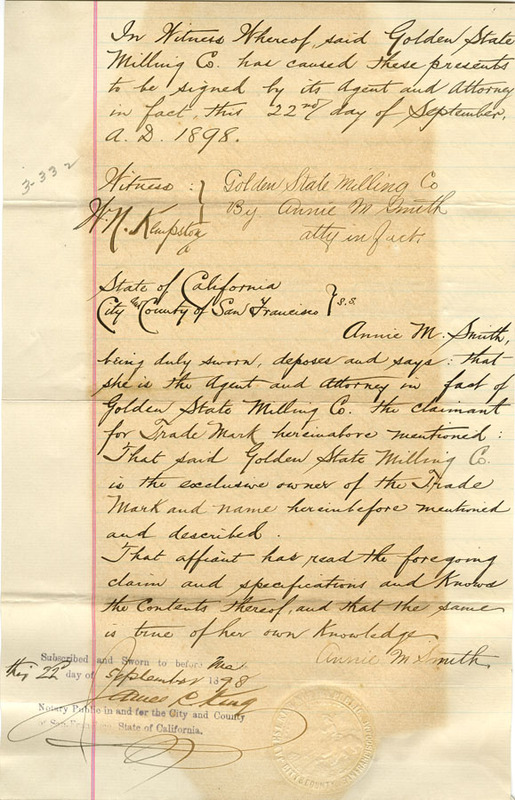 In Witness Whereof, said Golden State
Milling Co. has caused these presents
to be signed by its Agent and Attorney
in fact, this 22nd day of September,
A. D. 1898.
3-332
Witness : } Golden State Milling Co
By Annie M Smith
atty in fact.
State of California
City and County of San Francisco } s.s.
Annie M. Smith,
being duly sworn, deposes and says: that
she is the Agent and Attorney in fact of
Golden State Milling Co. the claimant
for Trade Mark hereinabove mentioned:
That said Golden State Milling Co.
is the exclusive owner of the Trade
Mark and name hereinbefore mentioned
and described.
That affiant has read the foregoing
claim and specifications and Knows
the Contents thereof, and that the same
is true of her own Knowledge
Annie M Smith
Subscribed and Sworn to before me
this 22d day of September 1898
James King
Notary Public in and for the City and County
of San Francisco, State of California.